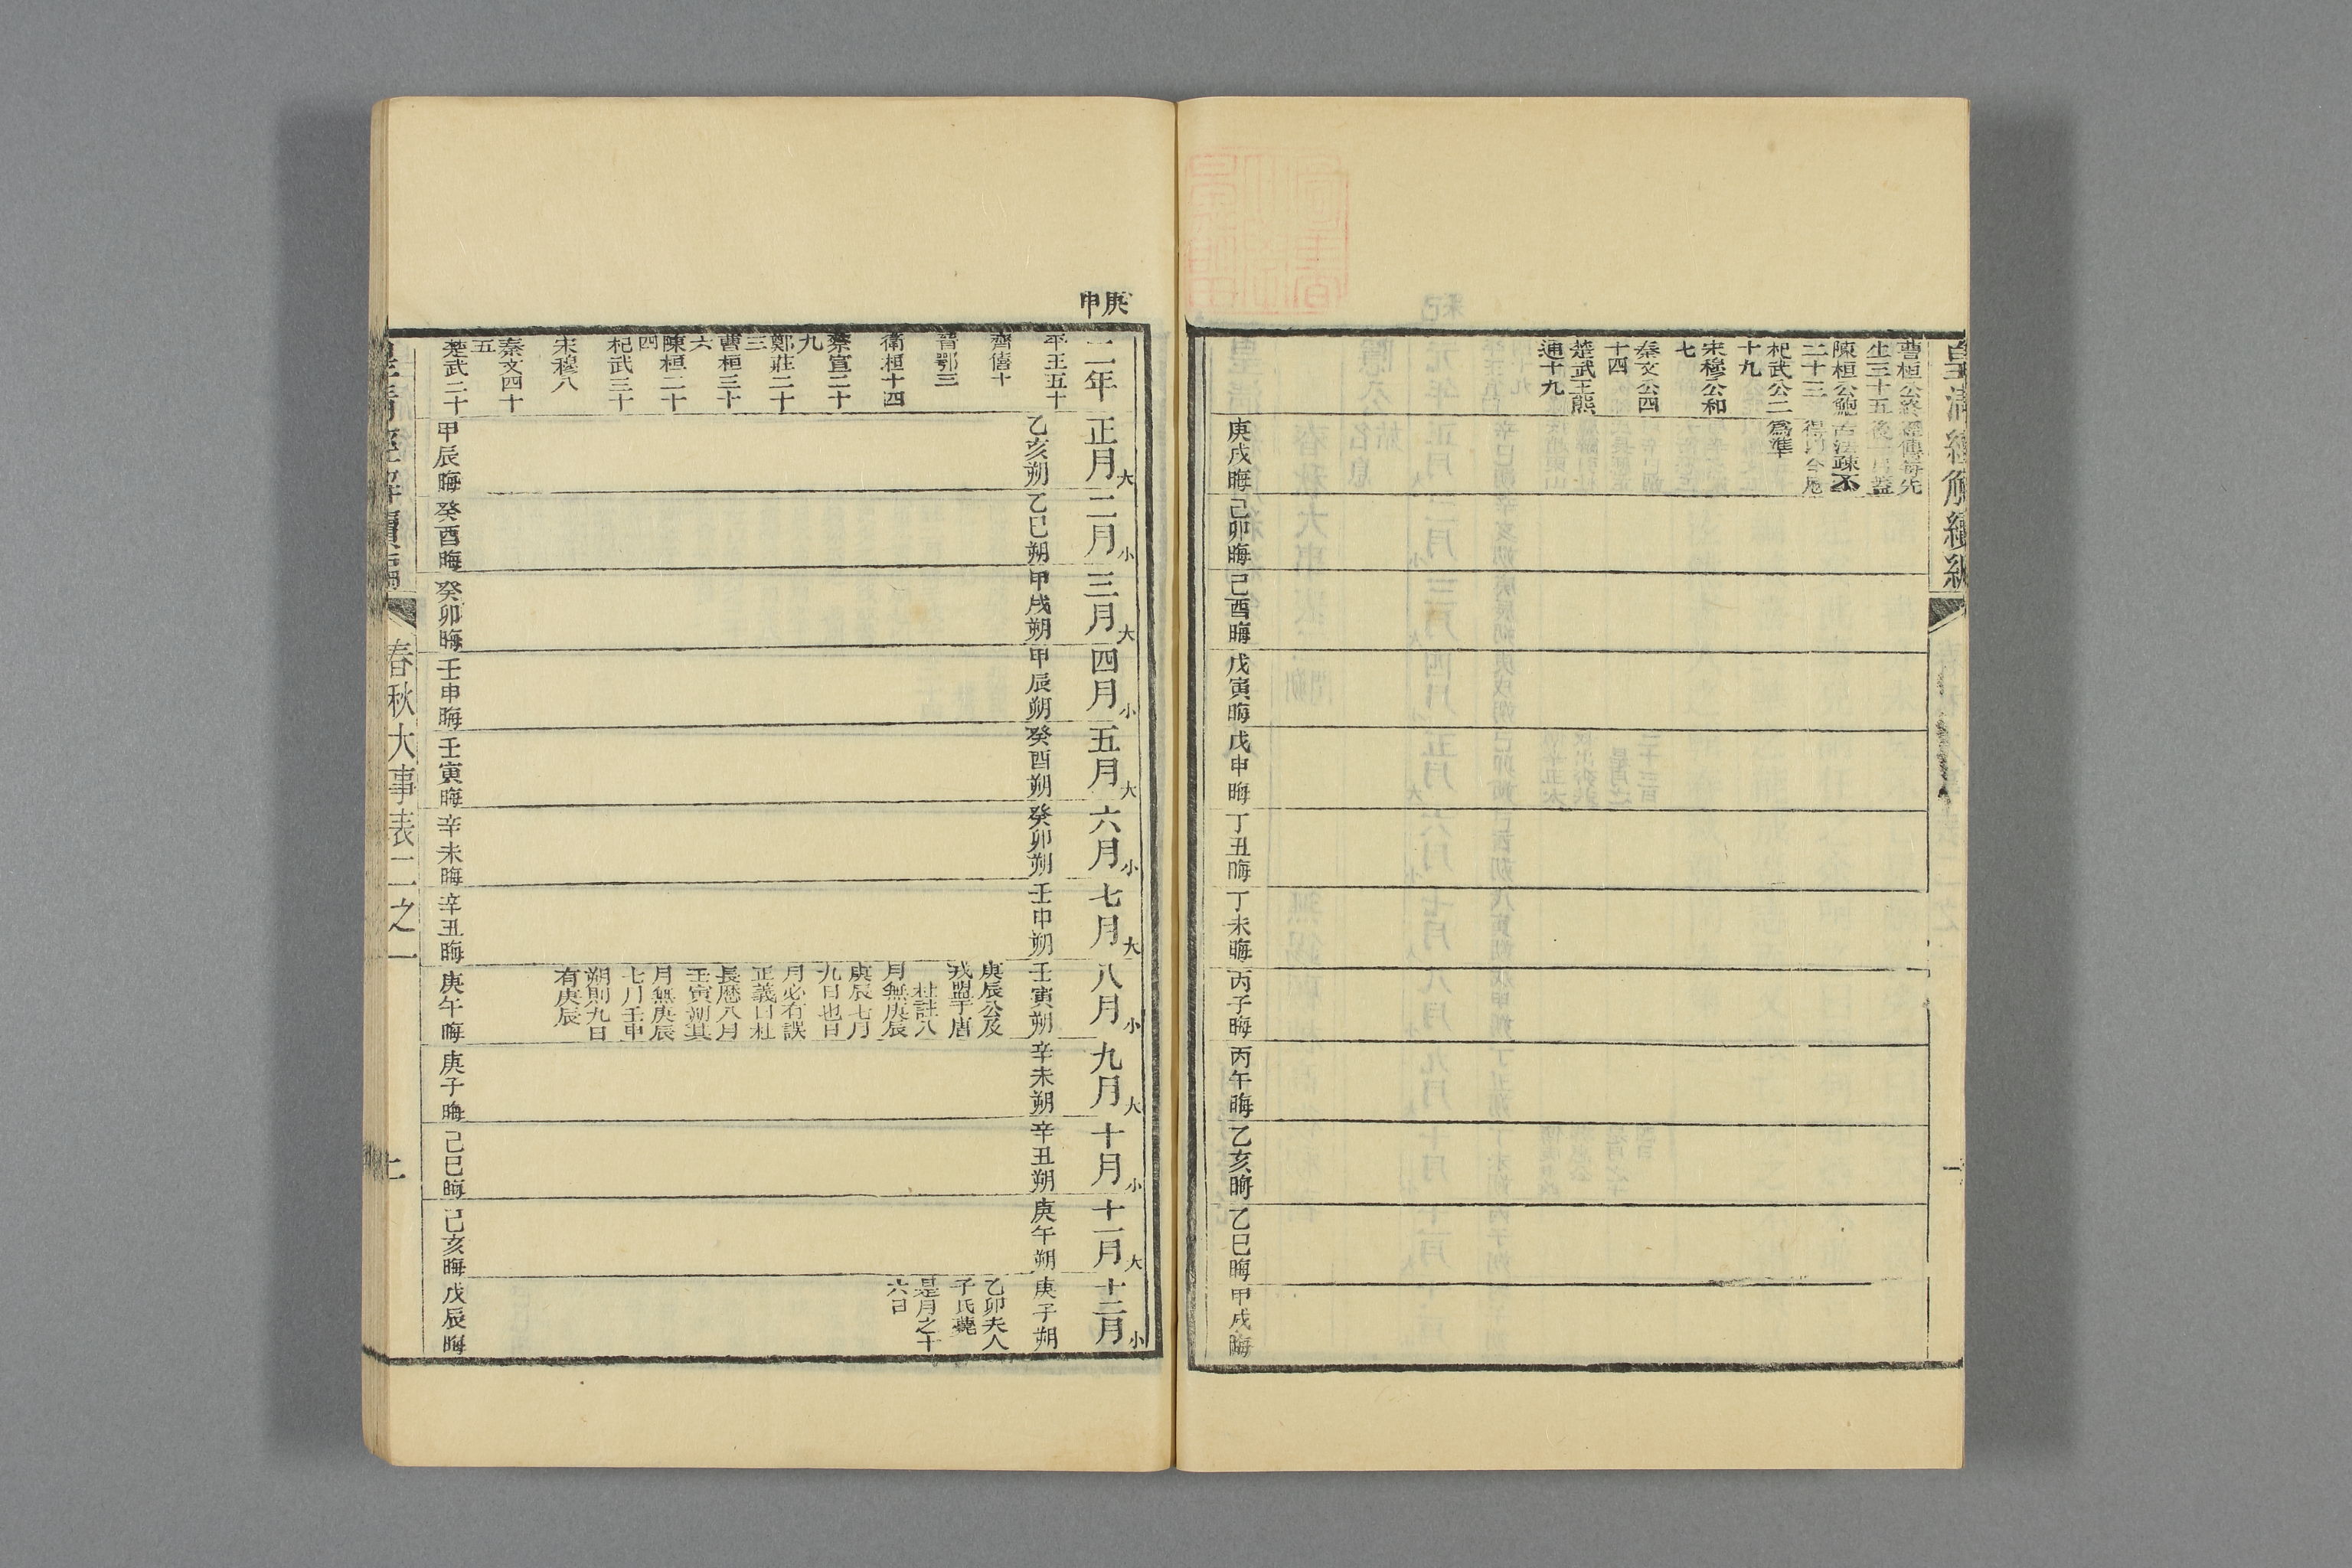 皇清經解續編
曹桓公終
生三十五
陳桓公鮑
二十三
杞武公二
十九
宋穆公和
七
秦文公四
十四
楚武王熊
通十九
經傳每先
後一月蓋
古法疎不
得以今應
爲準
庚戌晦
己卯晦
己酉晦
戊寅晦
戊申晦
丁丑晦
丁未晦
丙子晦
丙午晦
乙亥晦
乙巳晦
甲戌晦
庚申
二年
正月大
二月小
三月大
四月小
五月大
六月小
七月大
八月小
九月大
十月小
十一月大
十二月小
平王五十
齊僖十
晉鄂三
衛桓十四
蔡宣二十
九
鄭莊二十
三
曹桓三十
六
陳桓二十
四
杞武三十
宋穆八
秦文四十
五
楚武二十
乙亥朔
乙巳朔
甲戌朔
甲辰朔
癸酉朔
癸卯朔
壬申朔
壬寅朔
辛未朔
辛丑朔
庚午朔
庚子朔
庚辰公及
戎盟于唐
杜註八
月無庚辰
庚辰七月
九日也日
月必有誤
正義曰杜
長曆八月
壬寅朔其
月無庚辰
七月壬申
朔則九日
有庚辰
乙卯夫人
子氏薨
是月之十
六日
甲辰晦
癸酉晦
癸卯晦
壬申晦
壬寅晦
辛未晦
辛丑晦
庚午晦
庚子晦
己巳晦
己亥晦
戊辰晦
皇清經解續編
春秋大事表二之一